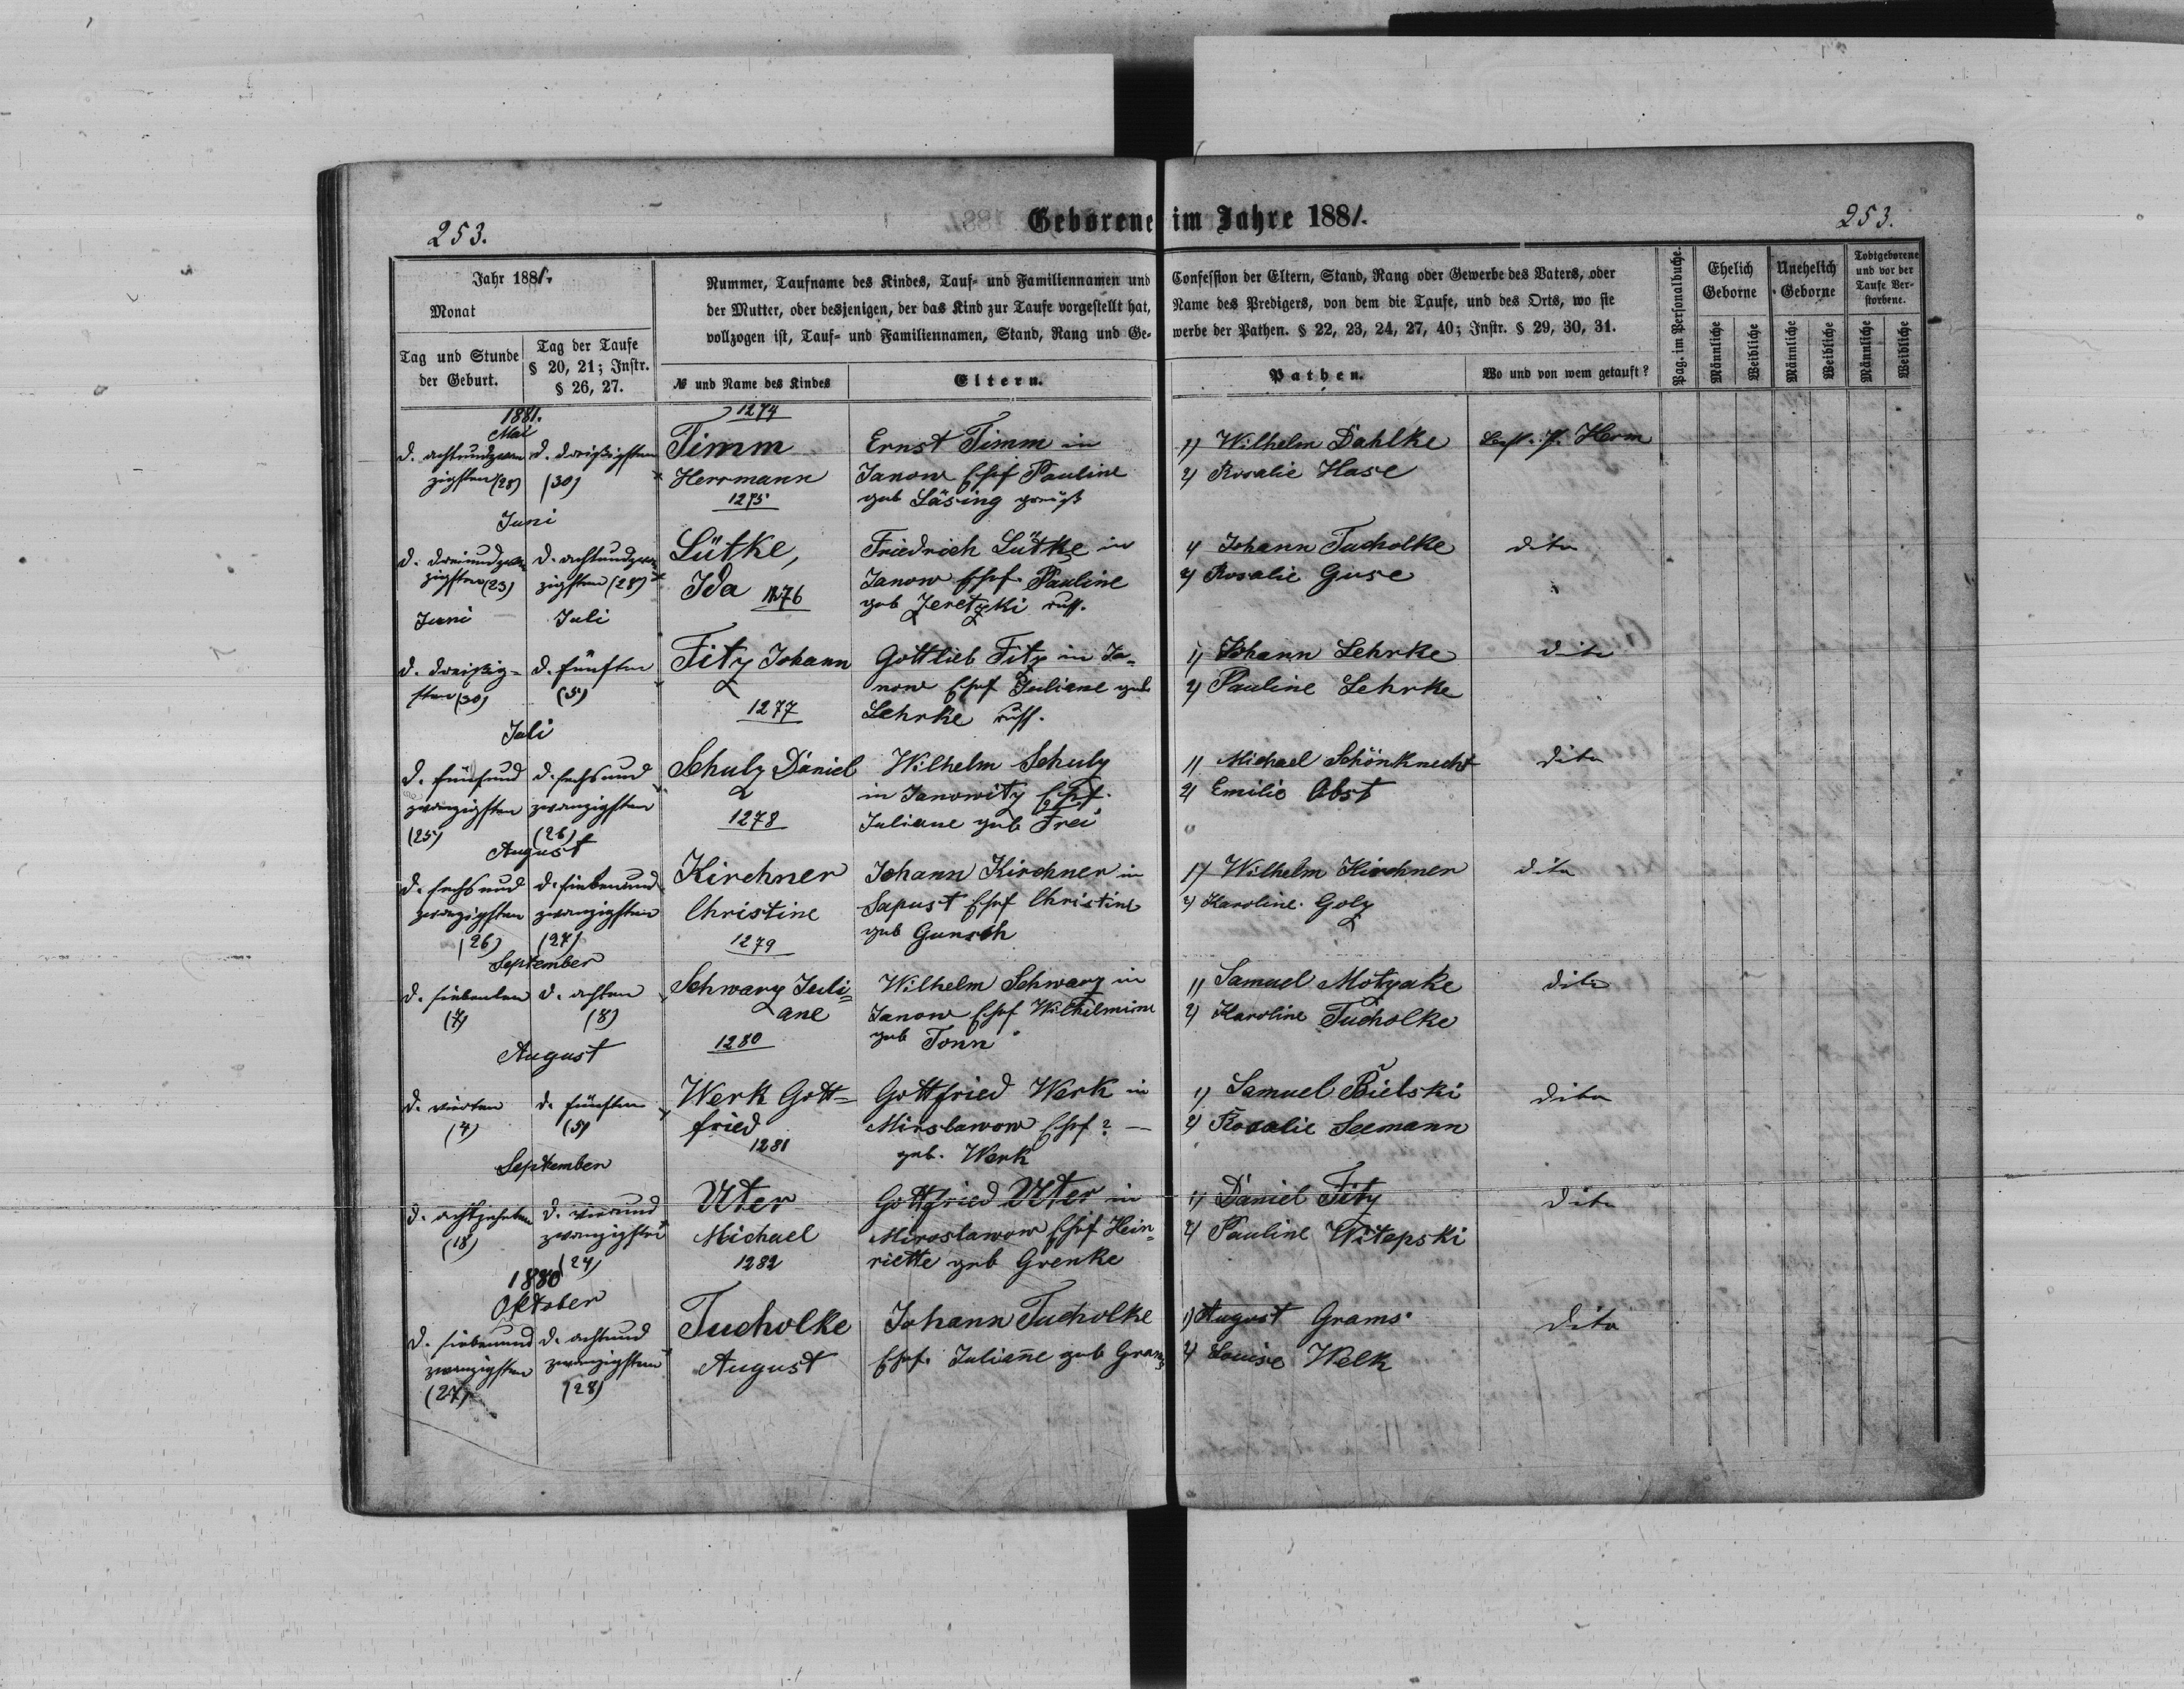 253.
Geborene im Jahre 1881.
253.
Jahr 1881.
Monat
Tag und Stunde der Geburt.
Tag der Taufe § 20, 21; Instr. § 26, 27.
Nummer, Taufname des Kindes, Tauf- und Familiennamen und Confession der Eltern, Stand, Rang oder Gewerbe des Vaters, oder
der Mutter, oder desjenigen, der das Kind zur Taufe vorgestellt hat, Name des Predigers, von dem die Taufe, und des Orts, wo sie
vollzogen ist, Tauf- und Familiennamen, Stand, Rang und Gewerbe der Pathen. § 22, 23, 24, 27, 40; Instr. § 29, 30, 31.
№ und Name des Kindes
Eltern.
Pathen.
Wo und von wem getauft?
Pag. im Personalbuche.
Ehelich Geborne
Unehelich Geborne
Todtgeborene und vor der Taufe Verstorbene.
Männliche
Weibliche
Männliche
Weibliche
Männliche
Weibliche
1881.
Mai
d. achtundzwan
zigsten (28)
d. dreißigsten
(30)
1274
Timm
Herrmann
Ernst Timm in
Janow Ehef Pauline
geb Läsing
1) Wilhelm Dahlke
2) Rosalie Hase
Herm
Juni
d. dreiundzwan
zigsten (23)
d. achtundzwan
zigsten (28)
1275
Lütke,
Ida
Friedrich Lütke in
Janow Ehef. Pauline
geb Jeretzki russ.
1) Johann Tucholke
2) Rosalie Guse
dito
Juni
Juli
d. dreißig-
sten (30)
d. fünften
(5)
1276
Fitz Johann
Gottlieb Fitz in Ja-
now Ehef Juliane geb
Lehrke russ.
1) Johann Lehrke
2) Pauline Lehrke
dito
Juli
d. fünfund
zwanzigsten
(25)
d. sechsund
zwanzigsten
(26)
1277
Schulz Daniel
Wilhelm Schulz
in Janowitz Ehef.
Juliane geb Frei
1) Michael Schönknecht
2) Emilie Abst
dito
August
d. sechsund
zwanzigsten
(26)
d. siebenund
zwanzigsten
(27)
1278
Kirchner
Christine
Johann Kirchner in
Sapust Ehef Christine
geb Gunsch
1) Wilhelm Kirchner
2) Karoline Golz
dito
September
d. siebenten
(7)
d. achten
(8)
1279
Schwarz Juli=
ane
Wilhelm Schwarz in
Janow Ehef Wilhelmine
geb Tonn
1) Samuel Motzake
2) Karoline Tucholke
dito
August
d. vierten
(4)
d. fünften
(5)
1280
Werk Gott=
fried
Gottfried Werk in
Mirslawow Ehef ? —
geb. Werk
1) Samuel Bielski
2) Rosalie Seemann
dito
September
d. achtzehnten
(18)
d. vierund
zwanzigsten
(24)
1281
Uter
Michael
Gottfried Uter in
Miroslawow Ehef Hein=
riette geb Grenke
1) Daniel Fitz
2) Pauline Witepski
dito
1880
Oktober
d. siebenund
zwanzigsten
(27)
d. achtund
zwanzigsten
(28)
1282
Tucholke
August
Johann Tucholke
Ehef. Juliane geb Grams
1) August Grams
2) Louise Welk
dito